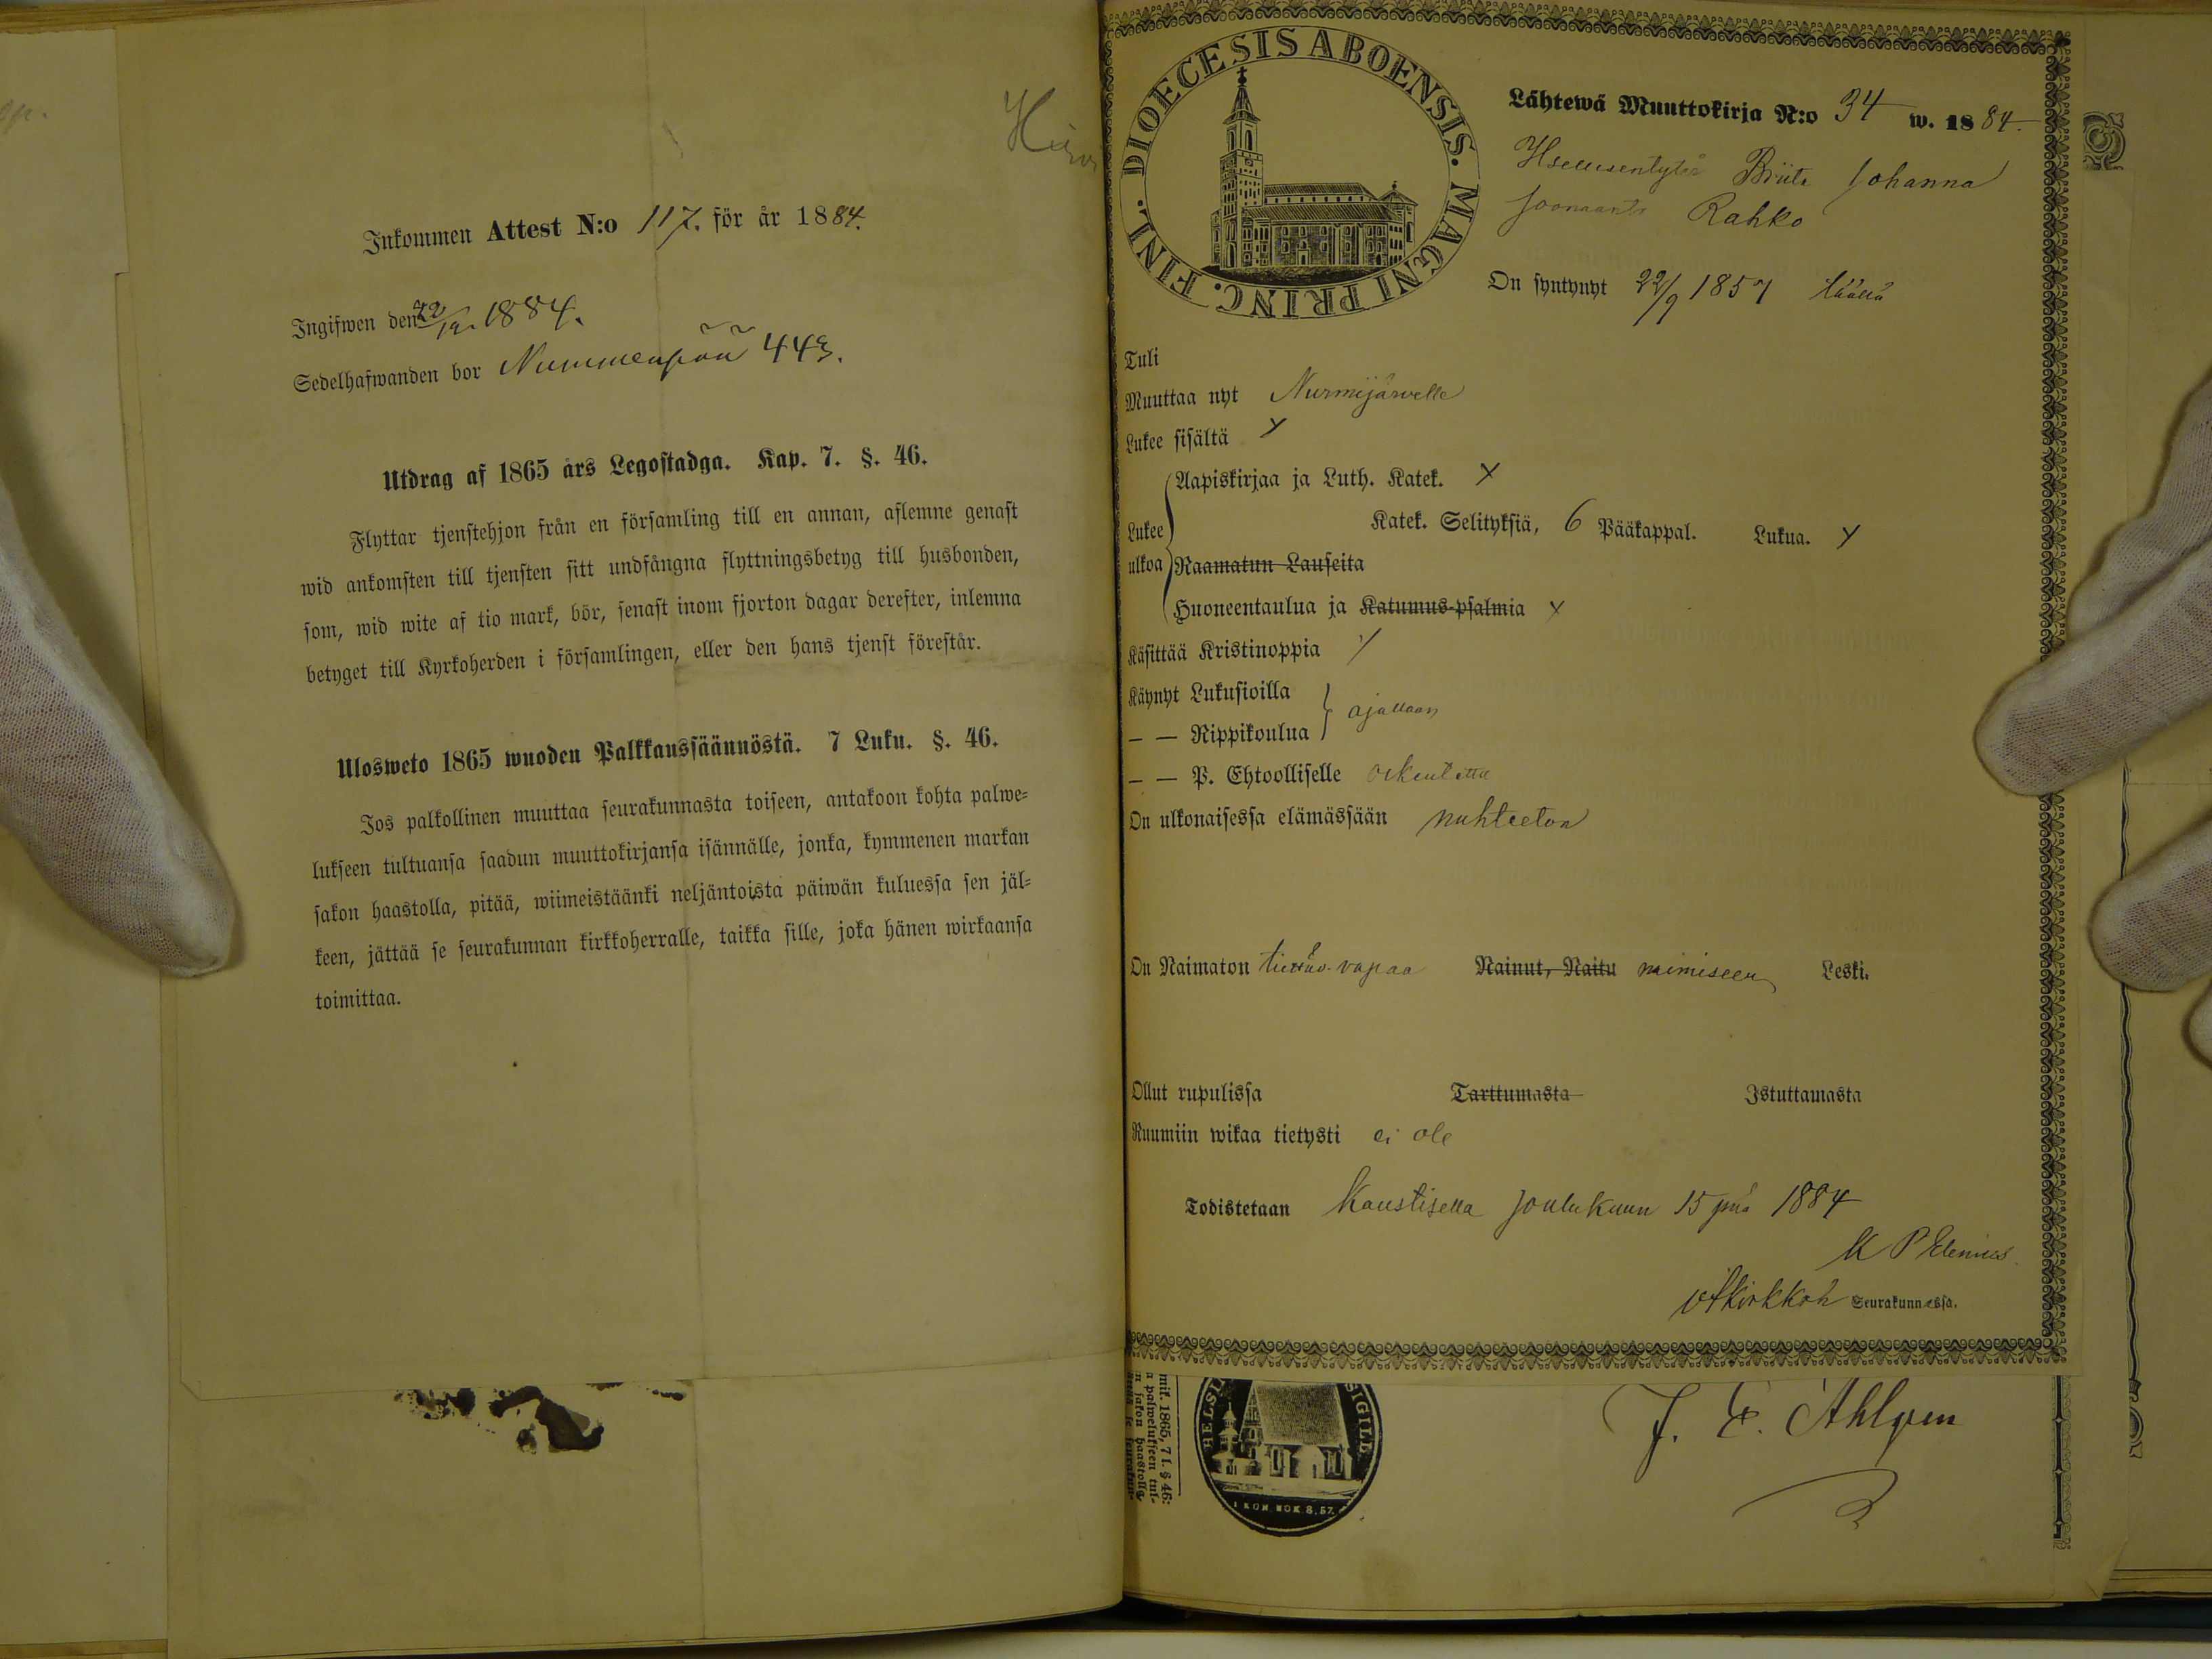 Inkommen Attest N:o 117. för år 1884.
Ingifwen den 22/12. 1884.
Sedelhafwanden bor Nummenpää 443.
Utdrag af 1865 års Legostadga. Kap. 7. §. 46.
Flyttar tjenstehjon från en församling till en annan, aflemne genast
wid ankomsten till tjensten sitt undfångna flyttningsbetyg till husbonden,
som, wid wite af tio mark, bör, senast inom fjorton dagar derefter, inlemna
betyget till Kyrkoherden i församlingen, eller den hans tjenst förestår.
Ulosweto 1865 wuoden Palkkaussäännöstä. 7 Luku. §. 46.
Jos palkollinen muuttaa seurakunnasta toiseen, antakoon kohta palwe=
lukseen tultuansa saadun muuttokirjansa isännälle, jonka, kymmenen markan
sakon haastolla, pitää, wiimeistäänki neljäntoista päiwän kuluessa sen jäl=
keen, jättää se seurakunnan kirkkoherralle, taikka sille, joka hänen wirkaansa
toimittaa.
DIOECESIS ABOENSIS. MAGNI PRINC. FINL.
Lähtewä Muuttokirja N:o 34 w. 1884.
Johanna
Rahko
On syntynyt 22/9 1857 täällä
Tuli
Muuttaa nyt Nurmijärvelle
Lukee sisältä x
Aapiskirjaa ja Luth. Katek. x
Lukee ulkoa
Katek. Selityksiä, 6 Pääkappal. Lukua. x
Raamatun Lauseita
Huoneentaulua ja Katumus-psalmia x
Käsittää Kristinoppia
Käynyt Lukusioilla
— — Rippikoulua
ajallaan
— — P. Ehtoolliselle
On ulkonaisessa elämässään nuhteeton
On Naimaton vapaa Nainut, Naitu naimiseen Leski.
Ollut rupulissa Tarttumasta Istuttamasta
Ruumiin wikaa tietysti ei ole
Todistetaan Kaustisella joulukuun 15 pnä 1884
K P Elenius
vtkirkkoh Seurakunnassa.
mif. 1865, 7 l. § 46:
SIGILL
J. E. Ahlgren